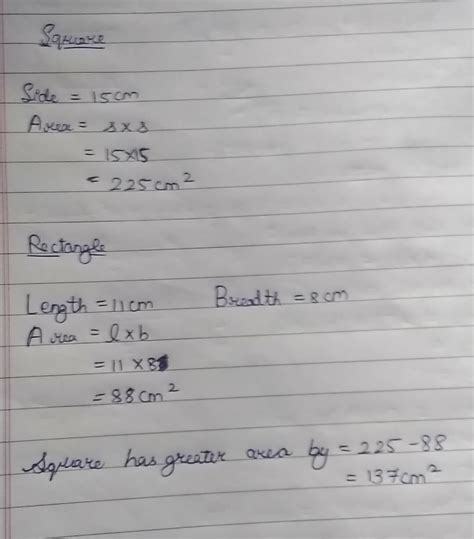 Square
Side = 15cm
Area = s x s
= 15x15
= 225cm²
Rectangle
Length = 11cm Breadth = 8cm
Area = l x b
= 11 x 8
= 88cm²
Square has greater area by = 225 - 88
= 137cm²